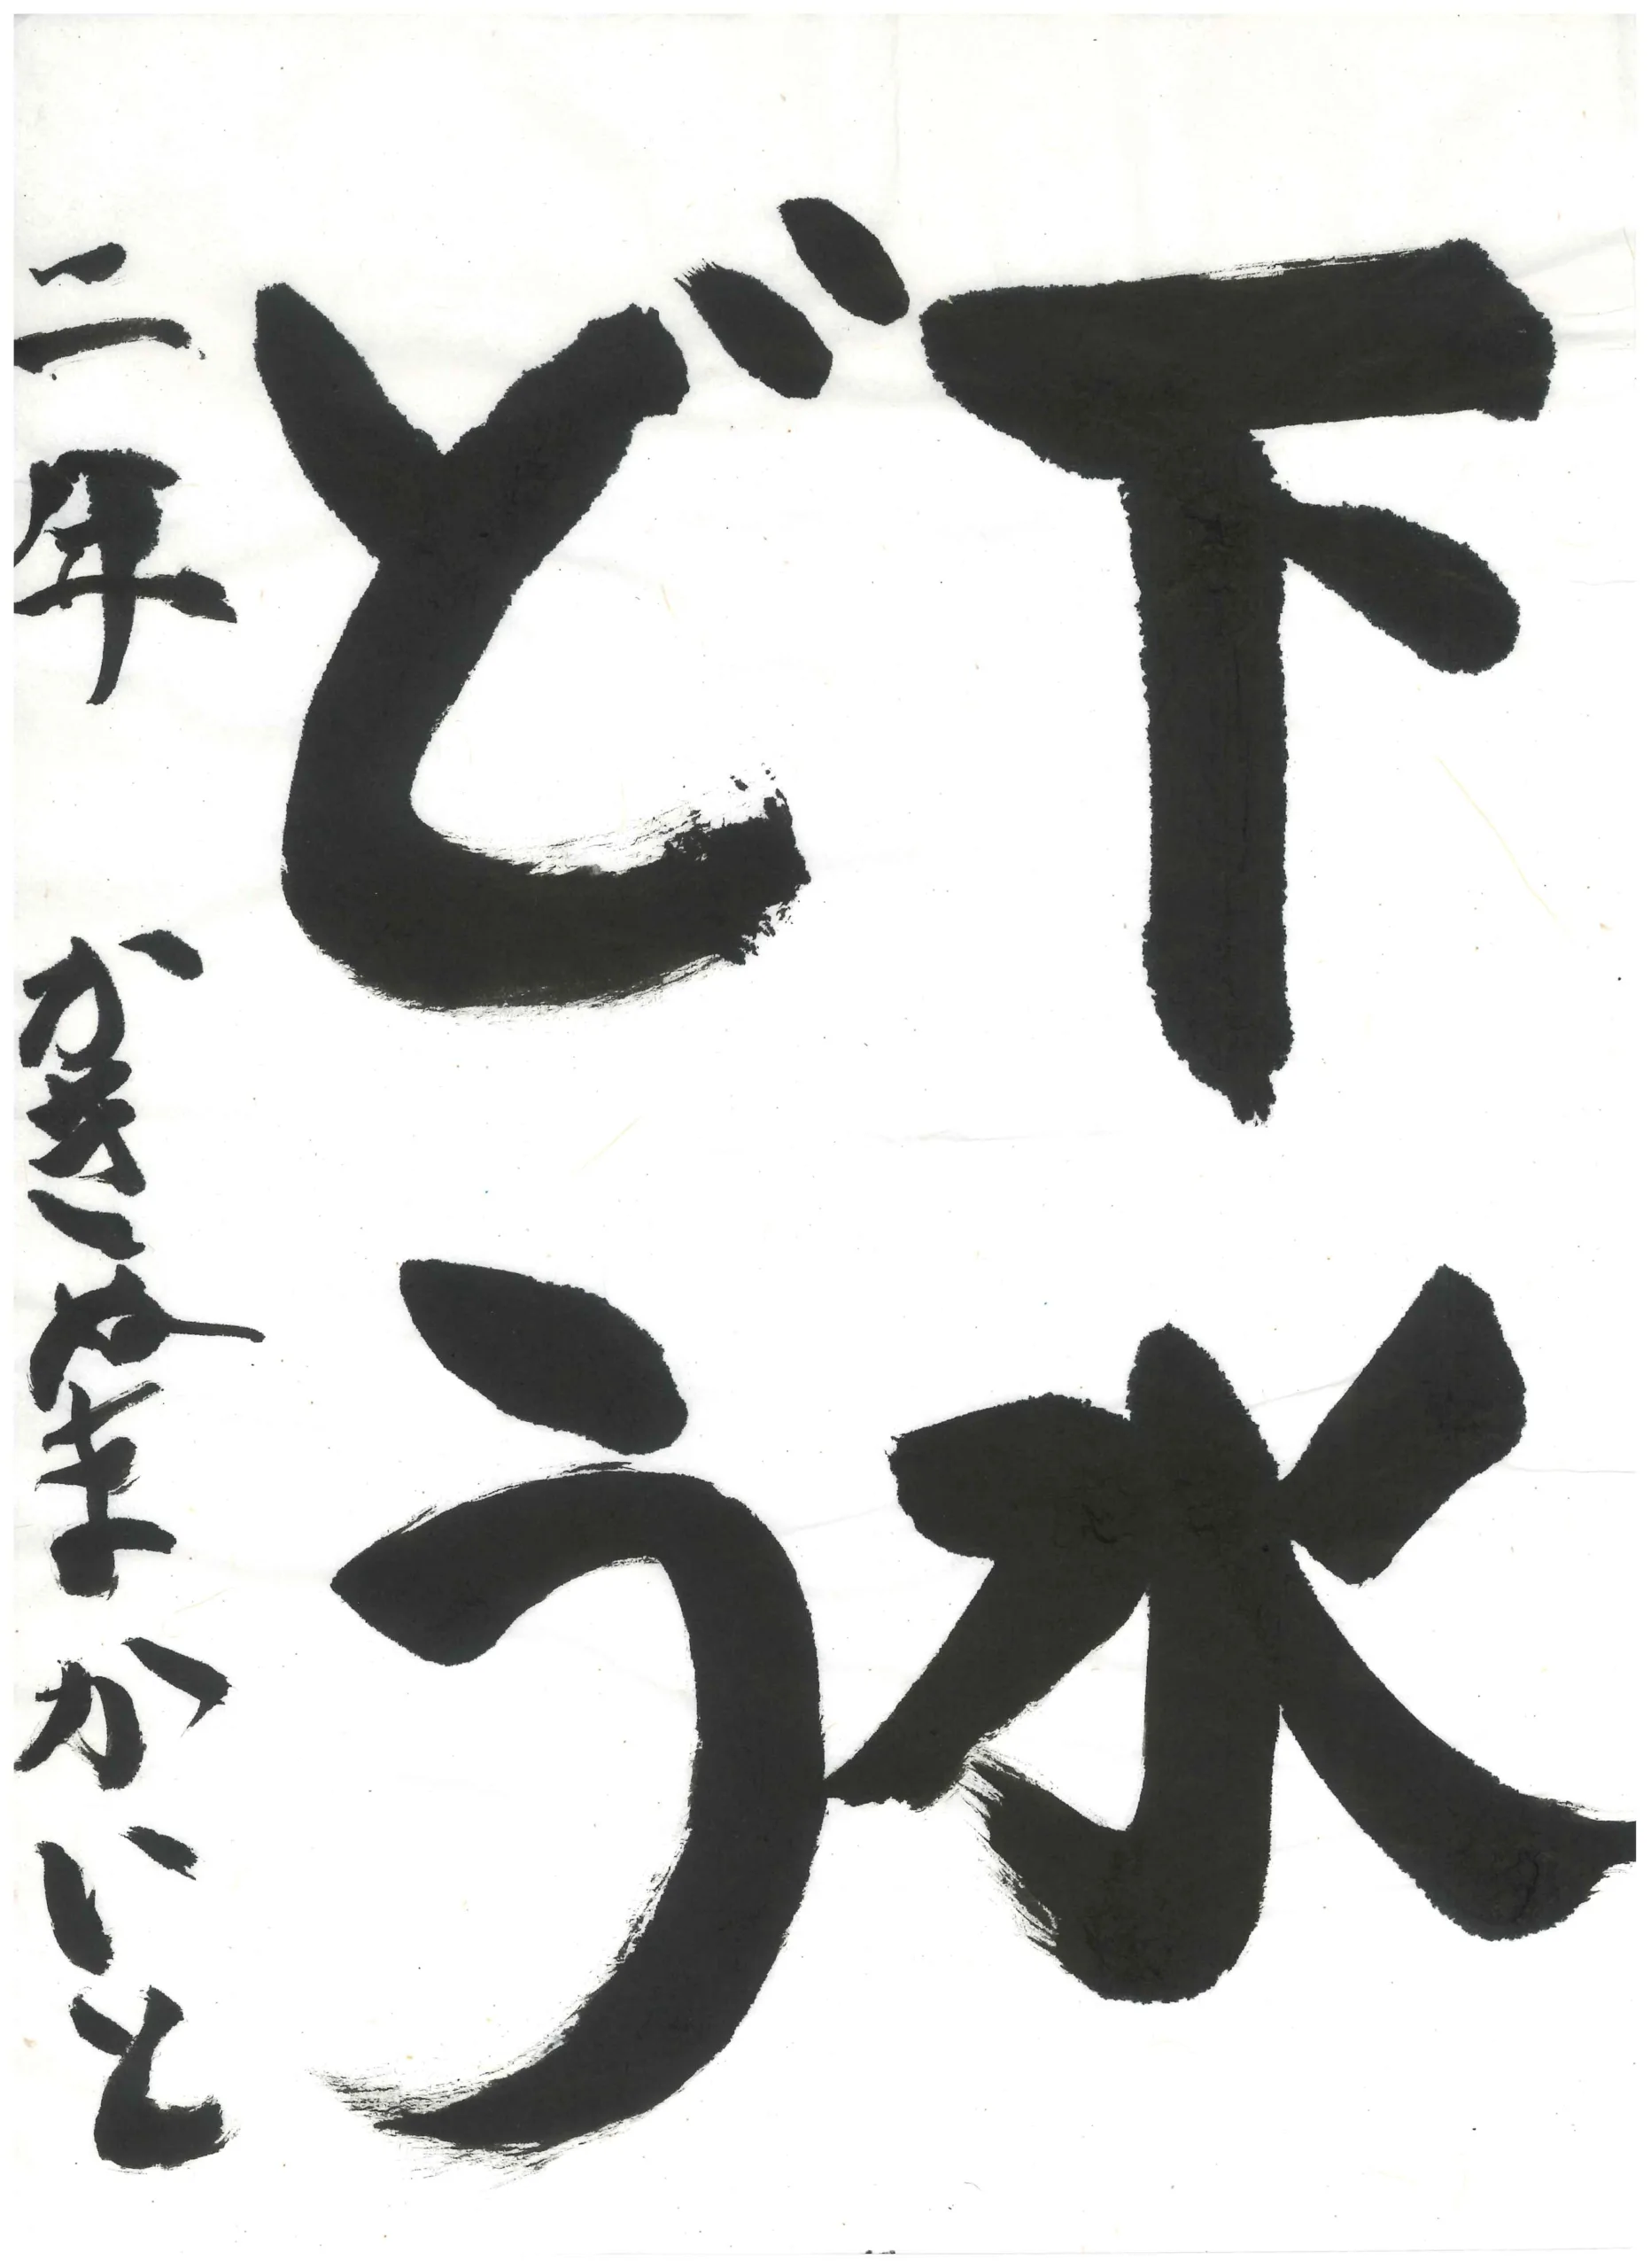 下水
どう
二年 かきぬまかいと